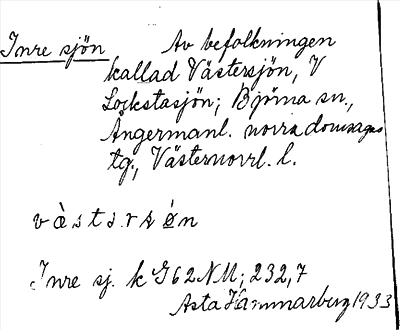 Inre sjön Av befolkningen
kallad Västersjön, V
Lockstasjön; Björna sn.,
Ångermanl. norra domsagas
tg., Västernorrl. l.
v ὰ s t s . r s ø n
Inre sj. k G62NM; 232,7
Asta Hammarberg 1933